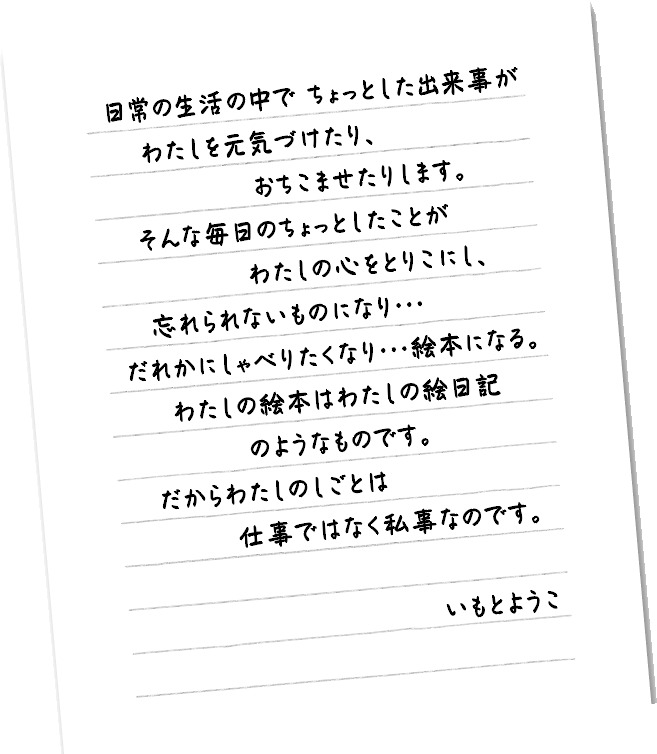 日常の生活の中で ちょっとした出来事が
わたしを元気づけたり、
おちこませたりします。
そんな毎日のちょっとしたことが
わたしの心をとりこにし、
忘れられないものになり･･･
だれかにしゃべりたくなり･･･絵本になる。
わたしの絵本はわたしの絵日記
のようなものです。
だからわたしのしごとは
仕事ではなく私事なのです。
いもとようこ